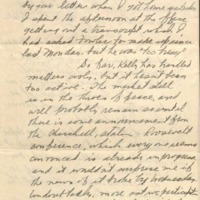 by your letter when I got home yesterday
I spent the afternoon at the office
getting out a transcript which I
had asked for
last Monday, but he was too busy.
So far, Kelly has handled
matters only, but it hasn't been
too active. The market still
is in the throes of peace, and
well probably remain scared till
there is some announcement from
the Churchill, Stalin, Roosevelt
conference, which every one seems
convinced is already in progress
and it wouldn't surprise me if
the news of it broke by Wednesday